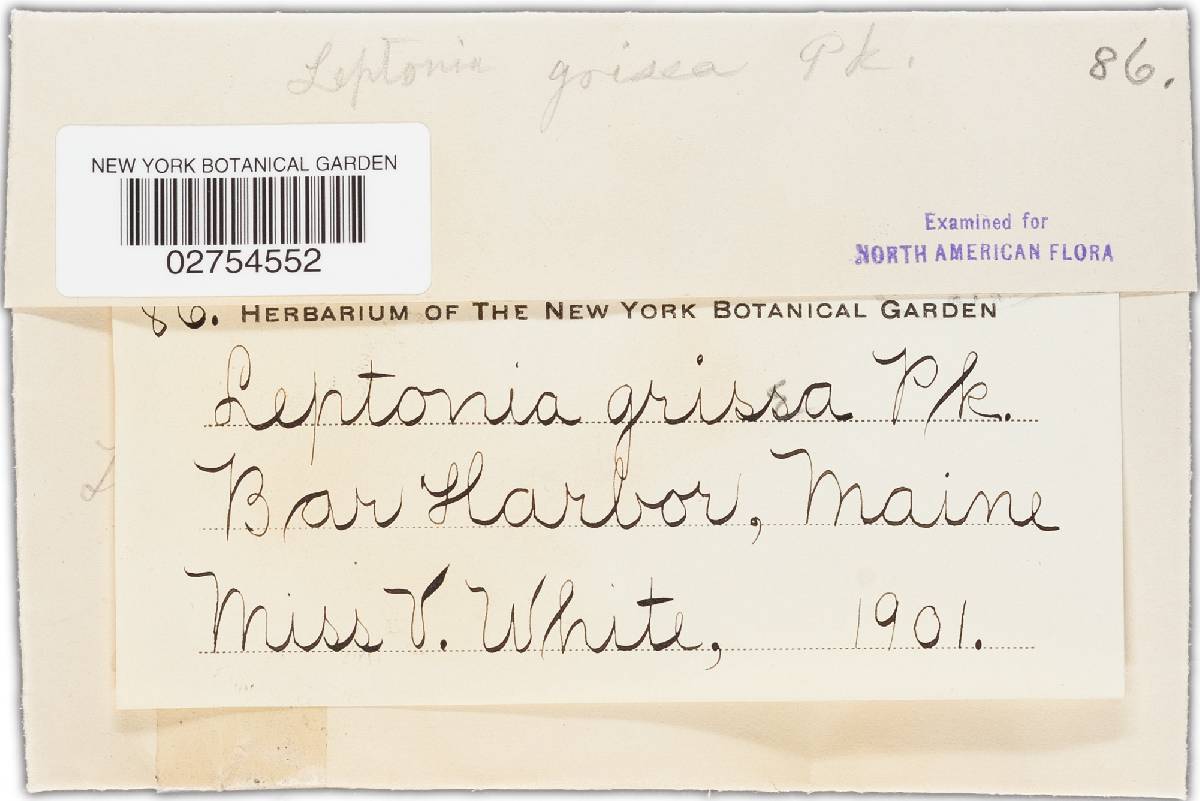 Leptonia grissa Pk.
86.
NEW YORK BOTANICAL GARDEN
02754552
Examined for
NORTH AMERICAN FLORA
86. HERBARIUM OF THE NEW YORK BOTANICAL GARDEN
Leptonia grissa Pk.
Bar Harbor, Maine
Miss V. White, 1901.